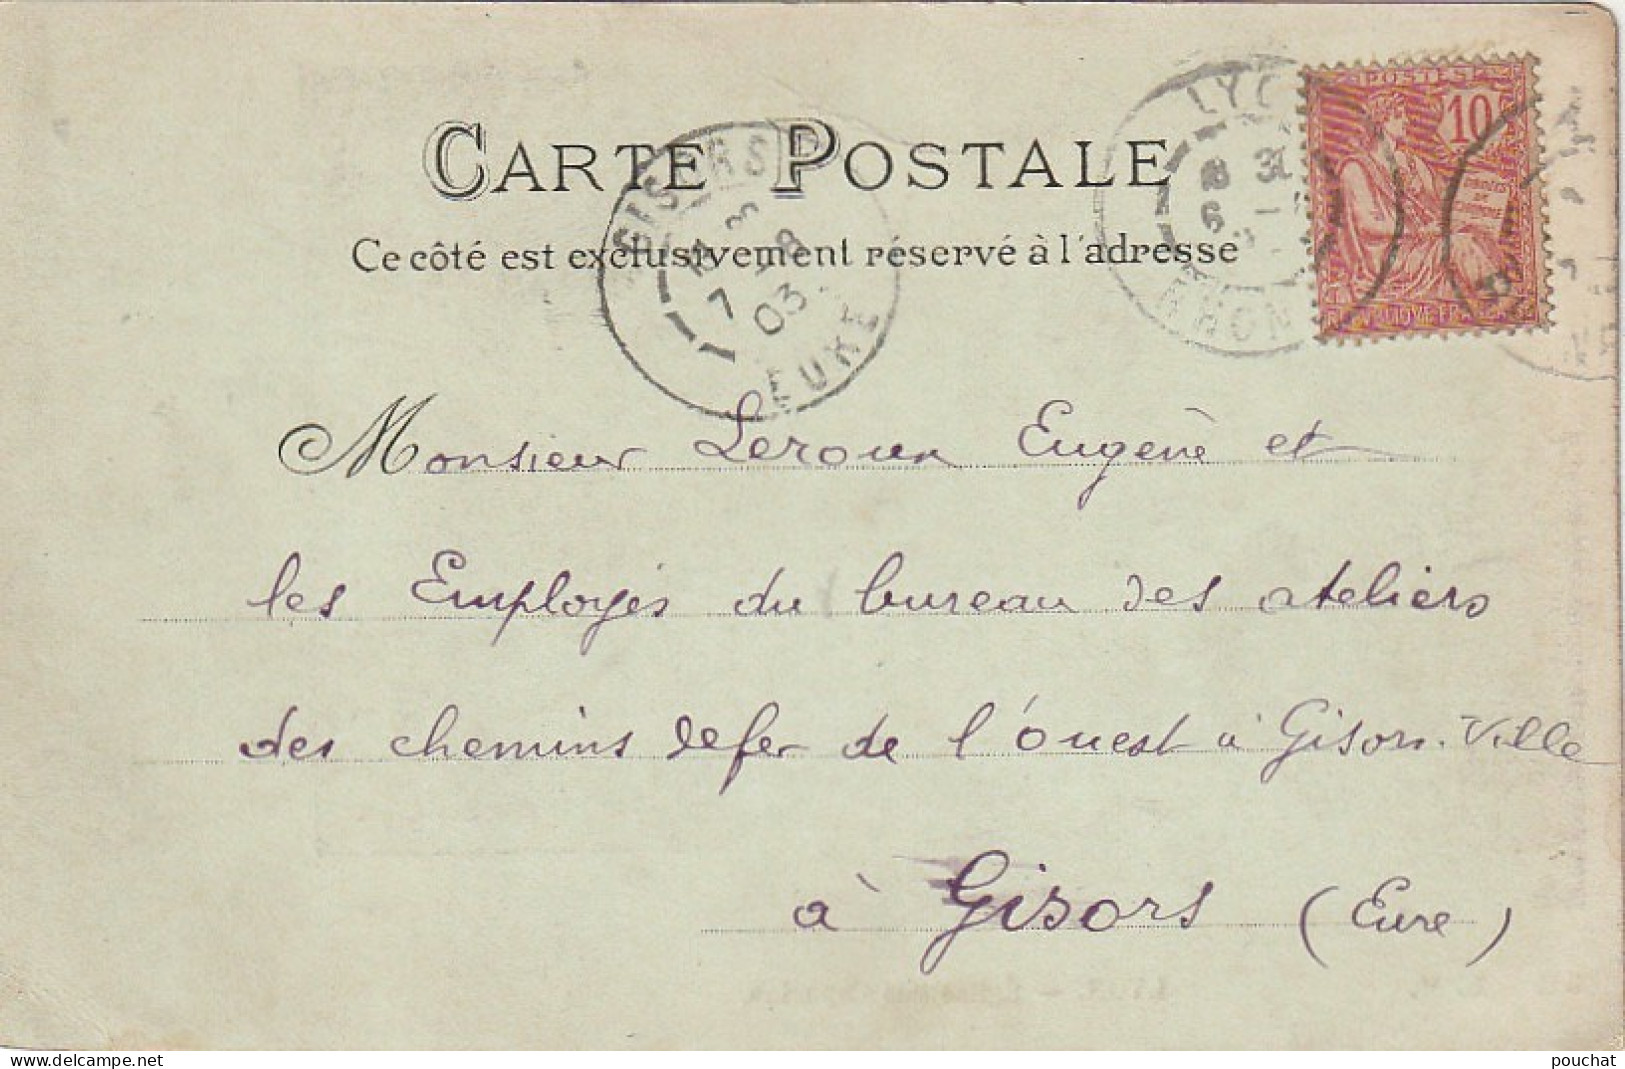 CARTE POSTALE
Ce côté est exclusivement réservé à l'adresse
POSTES
10
DROITS
DE
L'HOMME
REPUBLIQUE FRANCAISE
LYON
RHONE
GISORS
3
7 8
03
EURE
Monsieur Leroux Eugène et
les Employés du bureau des ateliers
des chemins de fer de l'Ouest à Gisors-Ville
à Gisors (Eure)
www.delcampe.net
pouchat